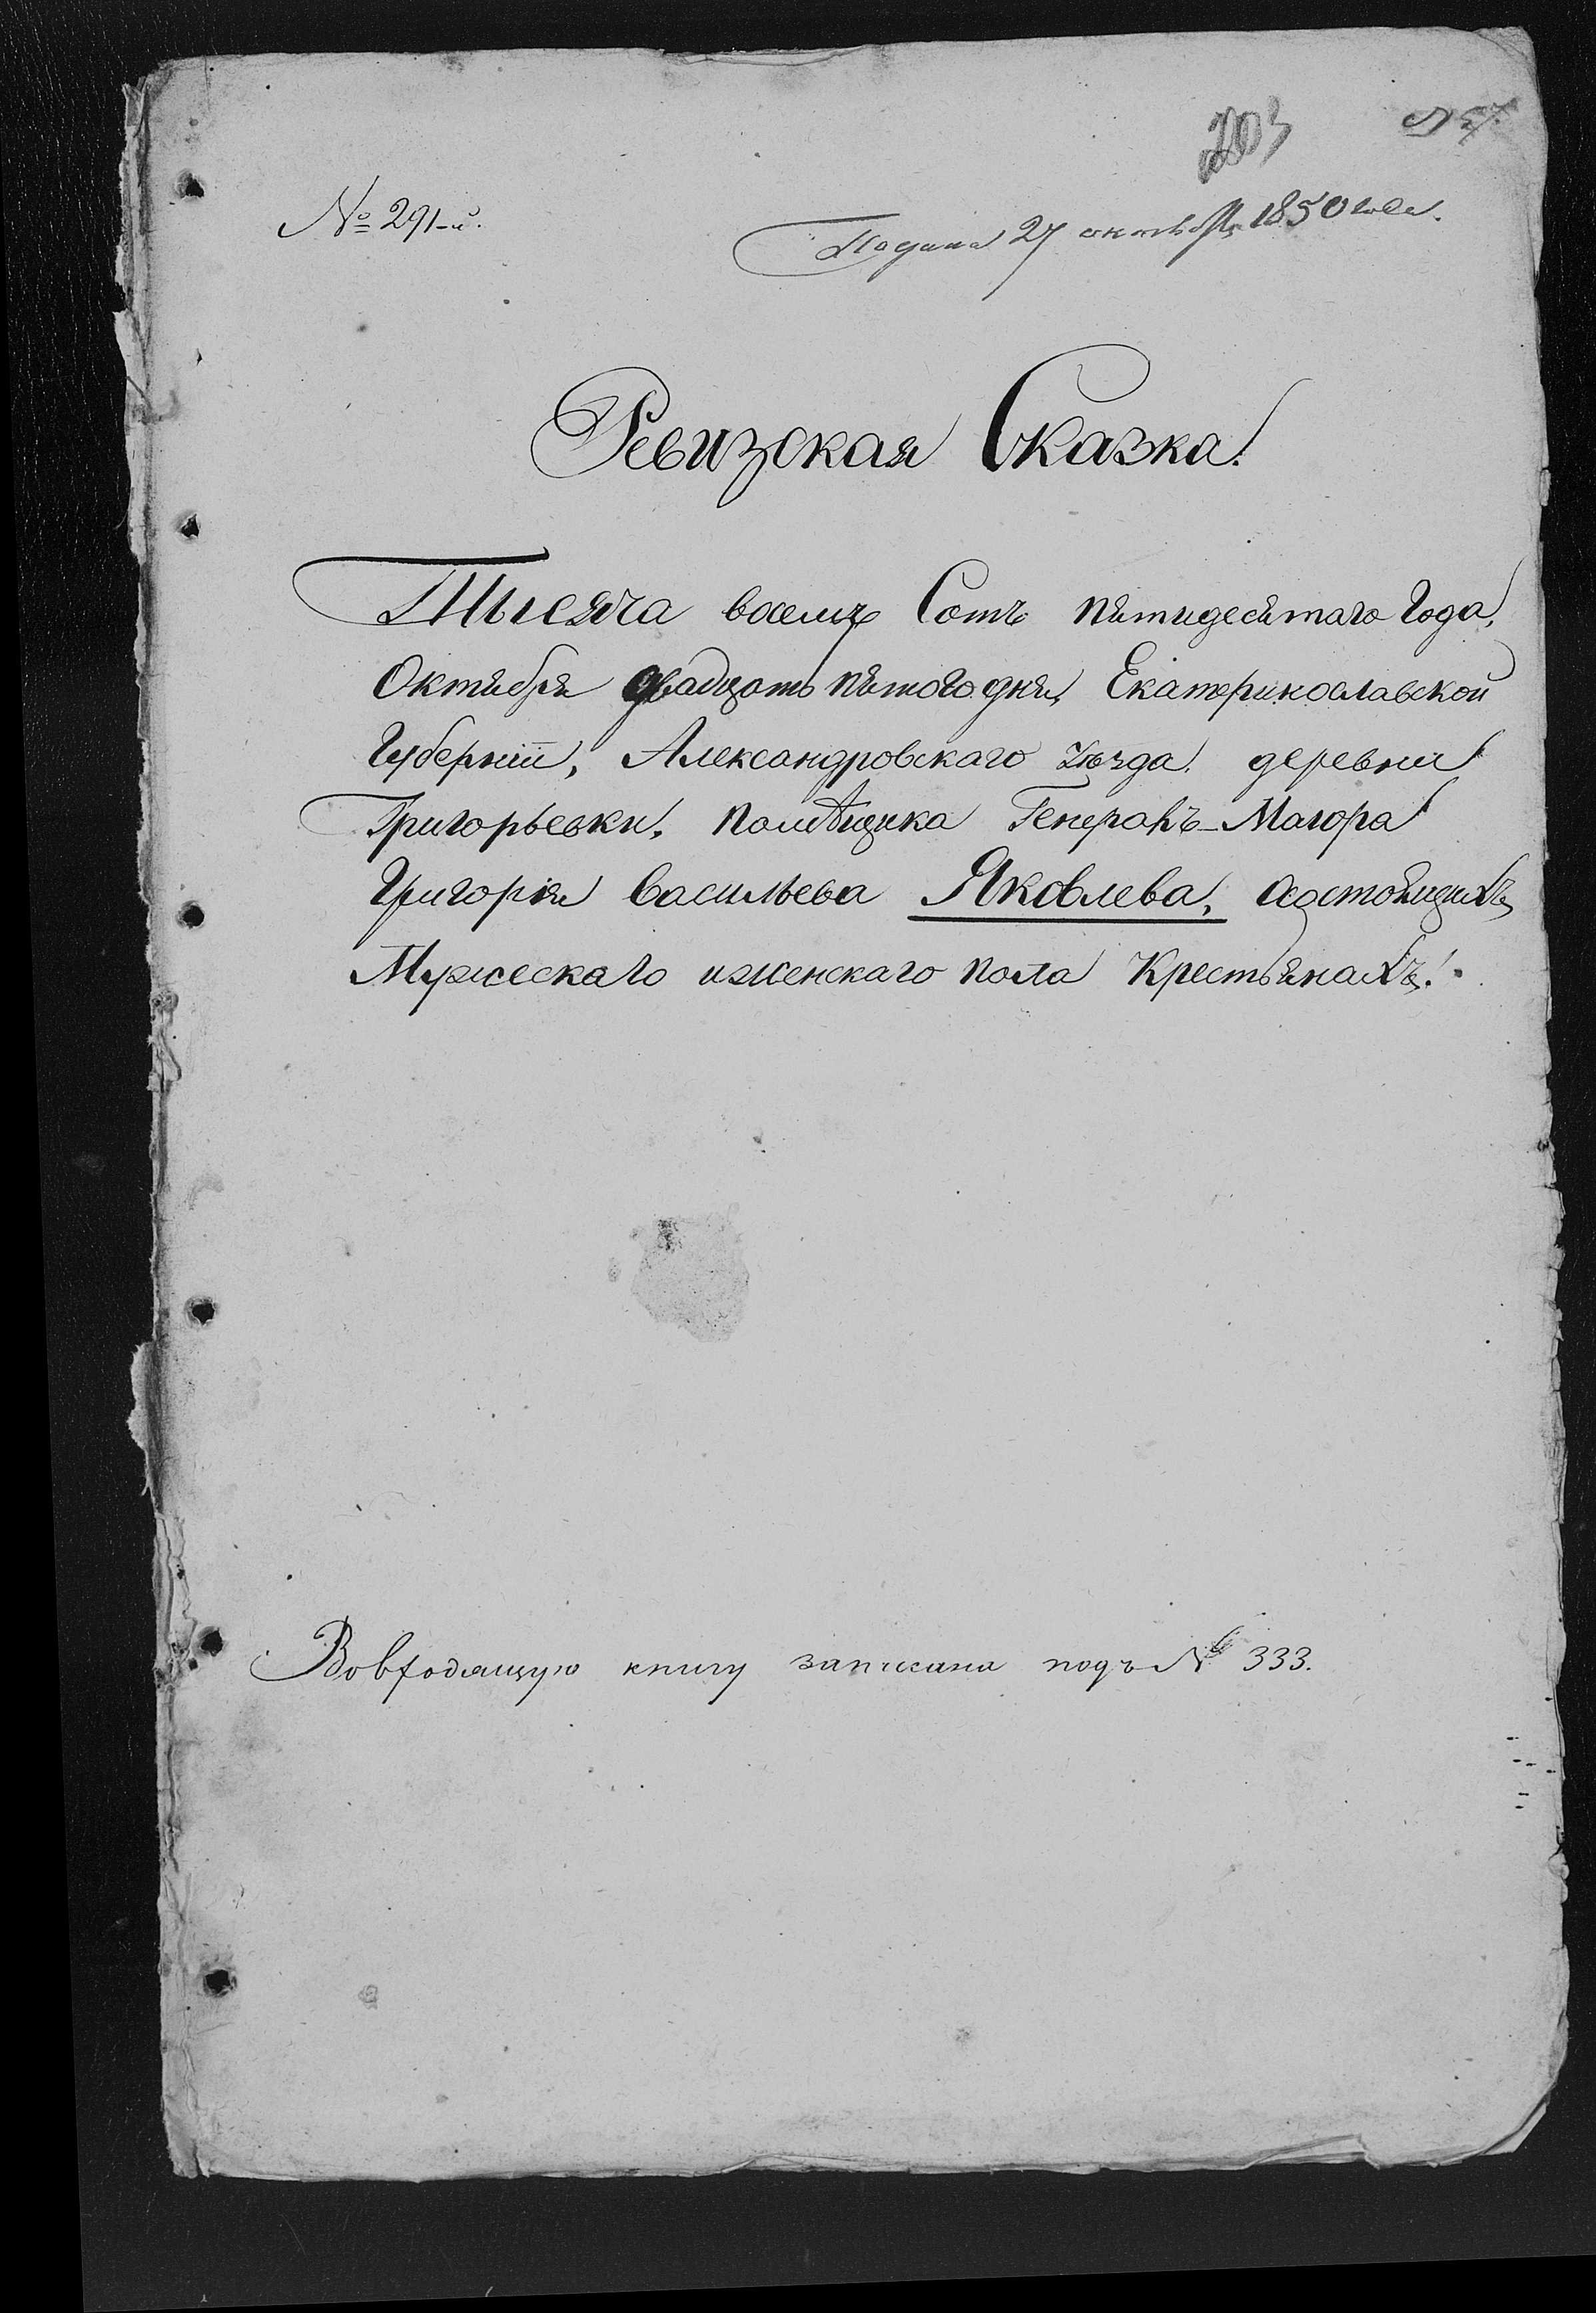 203
№ 291-й.
Подана 27 октября 1850 года.
Ревизская Сказка.
Тысяча восемь Сотъ пятидесятаго Года,
Октября двадцать пятого дня, Екатеринославской
Губерніи, Александровскаго Уѣзда, деревни
Григорьевки, помѣщика Генералъ-Маіора
Григорія Васильева Яковлева, осостоящихъ
Мужескаго иженскаго пола Крестьянахъ.
Вовходящую книгу записана подъ № 333.